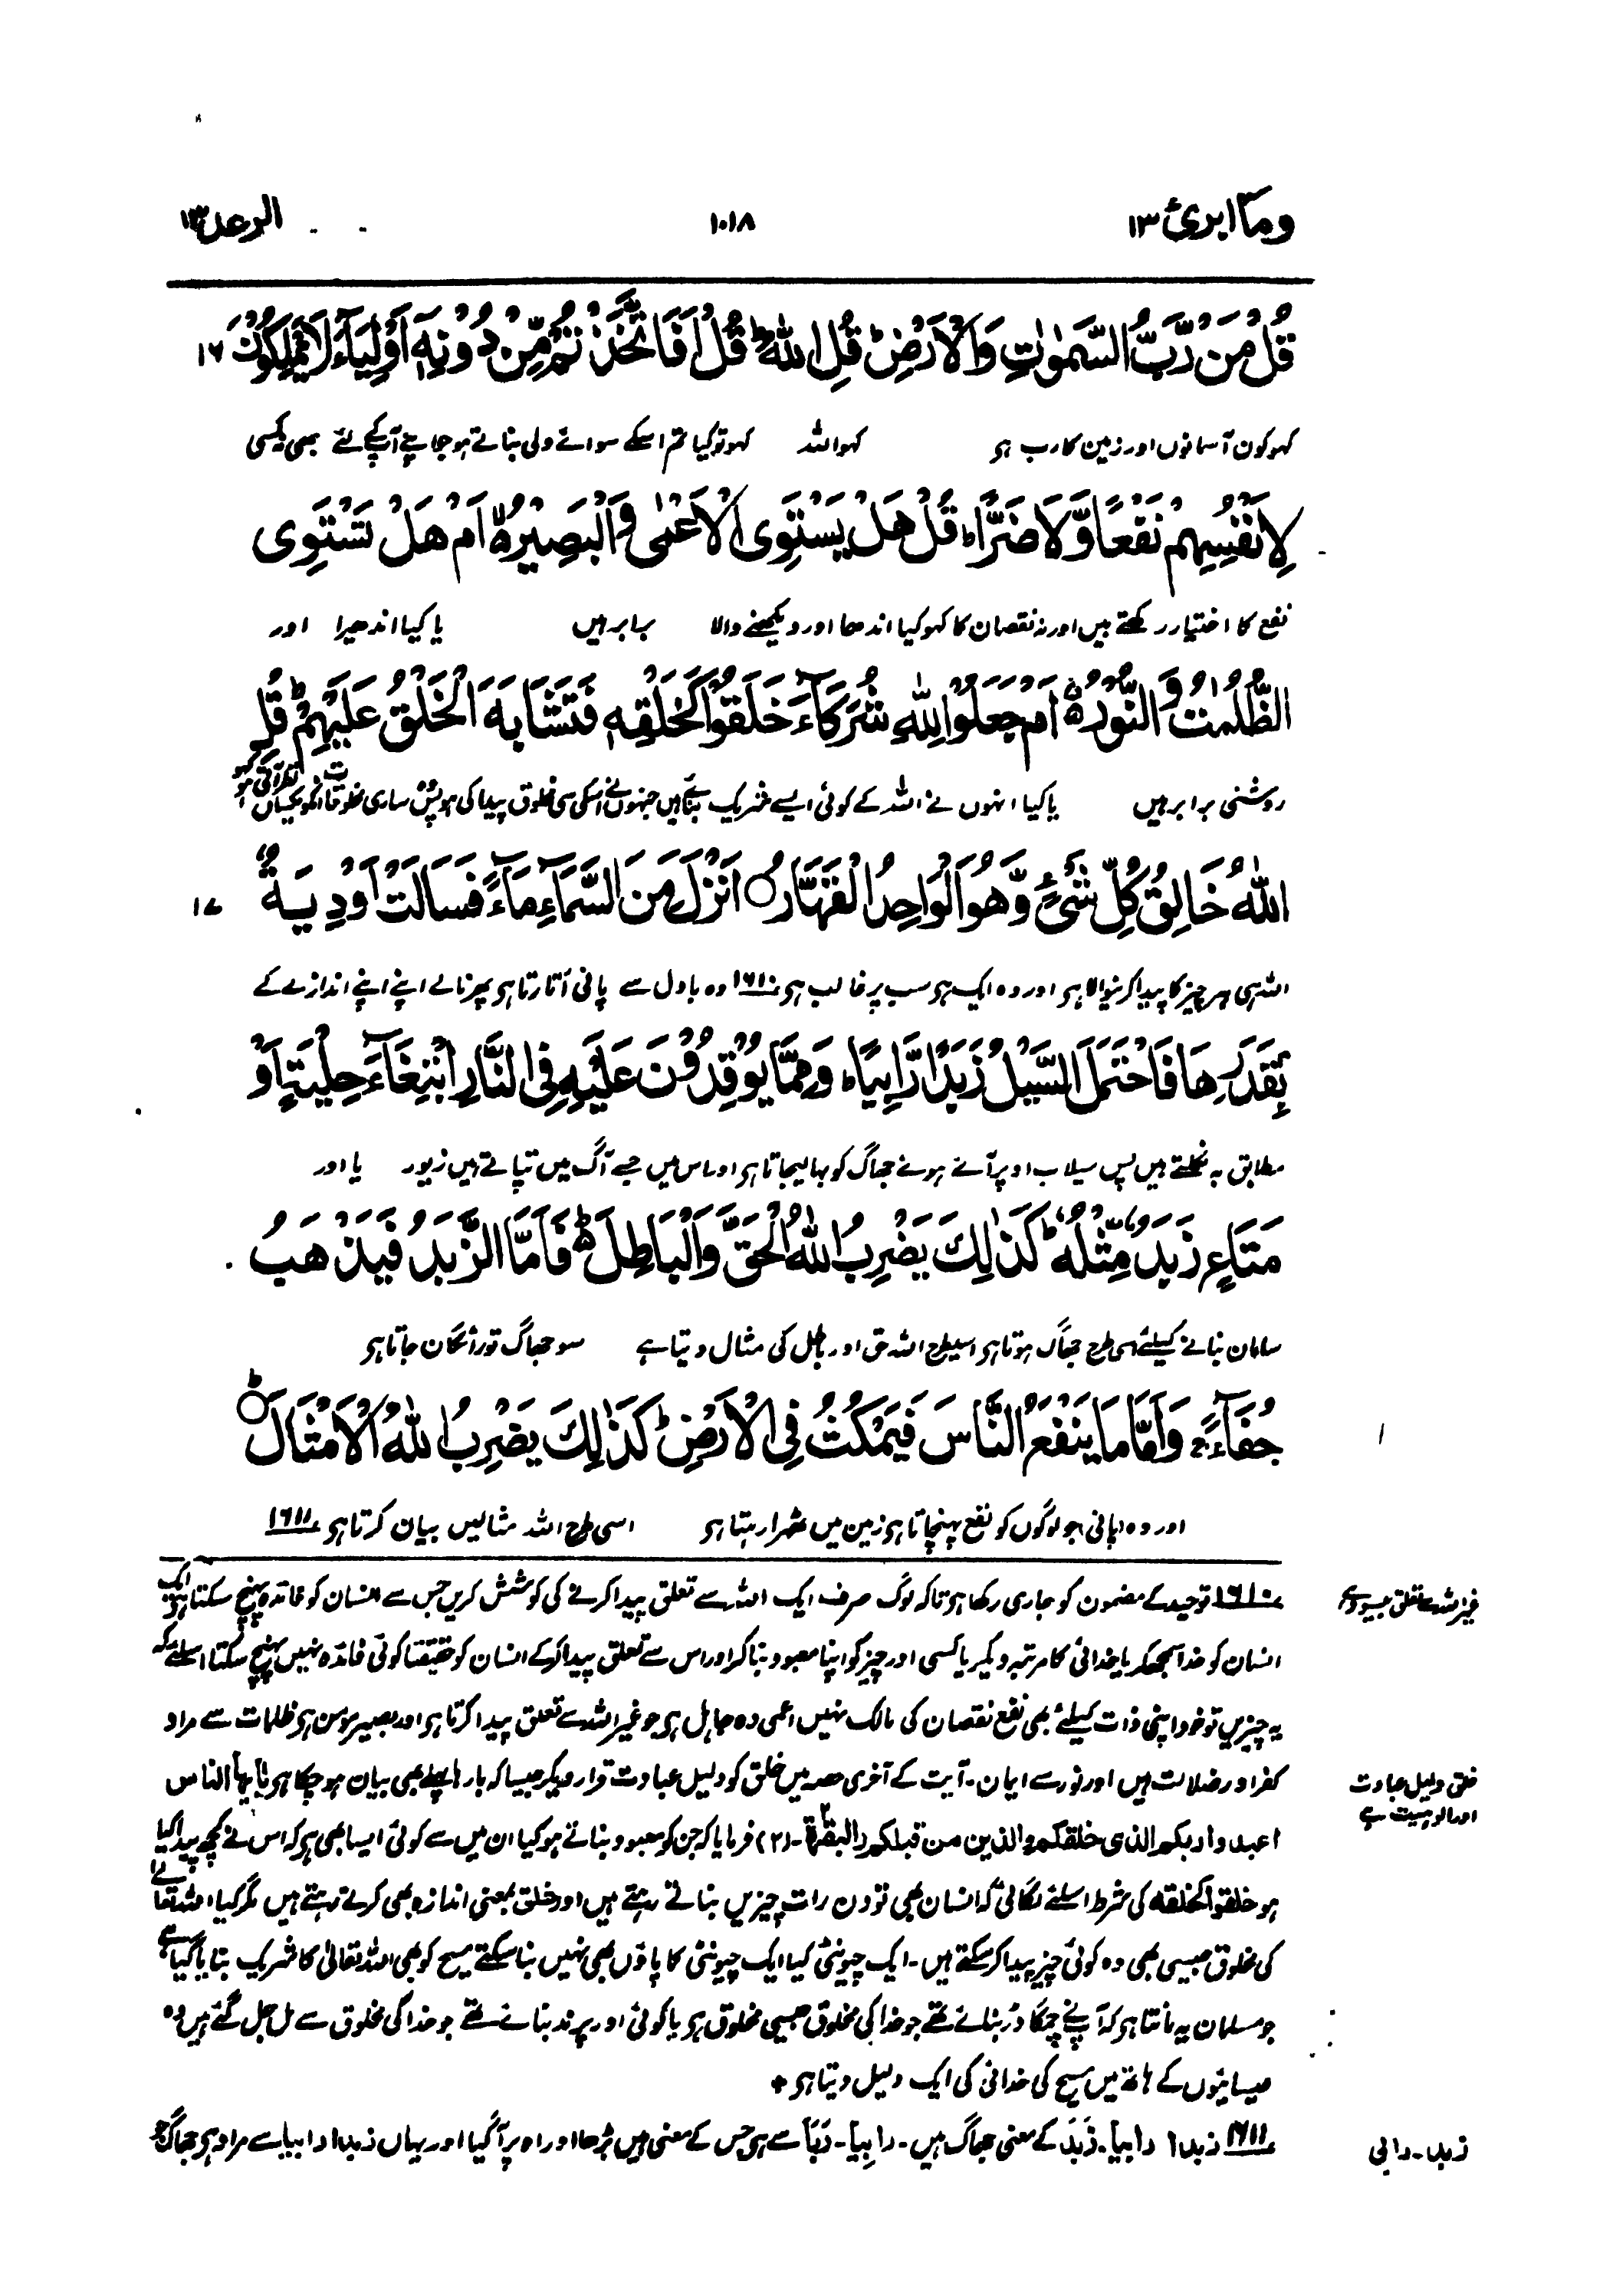 ومآ ابرئ ۱۳
۱۰۱۸
الرعد ۱۳
قُلْ مَنْ رَّبُّ السَّمٰوٰتِ وَالْاَرْضِ ؕ قُلِ اللّٰهُ ؕ قُلْ اَفَاتَّخَذْتُمْ مِّنْ دُوْنِهٖۤ اَوْلِيَآءَ لَا يَمْلِكُوْنَ ۱۶
کہو کون آسمانوں اور زمین کا رب ہو کہو اللہ کہو تو کیا تم اسکے سوائے ولی بناتے ہو جو اپنے آپ کے لئے بھی کسی
لِاَنْفُسِهِمْ نَفْعًا وَّلَا ضَرًّا ؕ قُلْ هَلْ يَسْتَوِى الْاَعْمٰى وَالْبَصِيْرُ ۙ اَمْ هَلْ تَسْتَوِى
نفع کا اختیار رکھتے ہیں اور نہ نقصان کا کہو کیا اندھا اور دیکھنے والا برابر ہیں یا کیا اندھیرا اور
الظُّلُمٰتُ وَالنُّوْرُ ۚ اَمْ جَعَلُوْا لِلّٰهِ شُرَكَآءَ خَلَقُوْا كَخَلْقِهٖ فَتَشَابَهَ الْخَلْقُ عَلَيْهِمْ ؕ قُلِ
روشنی برابر ہیں یا کیا انہوں نے اللہ کے کوئی ایسے شریک بنائے ہیں جنہوں نے اسکی سی مخلوق پیدا کی ہو پس ساری مخلوقات انکو یکساں نظر آتی ہو کہو
اللّٰهُ خَالِقُ كُلِّ شَىْءٍ وَّهُوَ الْوَاحِدُ الْقَهَّارُ ○ اَنْزَلَ مِنَ السَّمَآءِ مَآءً فَسَالَتْ اَوْدِيَةٌۢ ۱۷
اللہ ہی ہر چیز کا پیدا کرنیوالا ہو اور وہ ایک ہو سب پر غالب ہو ۱۶۱۰ وہ بادل سے پانی اُتارتا ہو پھر نالے اپنے اپنے اندازے کے
بِقَدَرِهَا فَاحْتَمَلَ السَّيْلُ زَبَدًا رَّابِيًا ؕ وَمِمَّا يُوْقِدُوْنَ عَلَيْهِ فِى النَّارِ ابْتِغَآءَ حِلْيَةٍ اَوْ
مطابق بہ نکلتے ہیں پس سیلاب اوپر آئے ہوئے جھاگ کو بہا لیجاتا ہو اور اس میں جسے آگ میں تپاتے ہیں زیور یا اور
مَتَاعٍ زَبَدٌ مِّثْلُهٗ ؕ كَذٰلِكَ يَضْرِبُ اللّٰهُ الْحَقَّ وَالْبَاطِلَ ؕ فَاَمَّا الزَّبَدُ فَيَذْهَبُ
سامان بنانے کیلئے اسی طرح جھاگ ہوتا ہو اسیطرح اللہ حق اور باطل کی مثال دیتا ہے سو جھاگ تو رائگان جاتا ہو
جُفَآءً ۚ وَاَمَّا مَا يَنْفَعُ النَّاسَ فَيَمْكُثُ فِى الْاَرْضِ ؕ كَذٰلِكَ يَضْرِبُ اللّٰهُ الْاَمْثَالَ ؕ○
اور وہ (پانی) جو لوگوں کو نفع پہنچاتا ہو زمین میں ٹھہرا رہتا ہو اسی طرح اللہ مثالیں بیان کرتا ہو ۱۶۱۱
۱۶۱۰ توحید کے مضمون کو جاری رکھا ہو تاکہ لوگ صرف ایک اللہ سے تعلق پیدا کرنے کی کوشش کریں جس سے انسان کو فائدہ پہنچ سکتا ہو ایک
انسان کو خدا سمجھ کر یا خدائی کا مرتبہ دیکر یا کسی اور چیز کو اپنا معبود بنا کر اور اس سے تعلق پیدا کرکے انسان کو حقیقتاً کوئی فائدہ نہیں پہنچ سکتا اسلئے کہ
یہ چیزیں تو خود اپنی ذات کیلئے بھی نفع نقصان کی مالک نہیں اعمی وہ جاہل ہو جو غیر اللہ سے تعلق پیدا کرتا ہو اور بصیر مومن ہو ظلمات سے مراد
کفر اور ضلالت ہیں اور نور سے ایمان۔ آیت کے آخری حصہ میں خلق کو دلیل عبادت قرار دیکر جیسا کہ بارہا پہلے بھی بیان ہو چکا ہو یا ایھا الناس
اعبدوا ربکم الذی خلقکم والذین من قبلکم (البقرۃ۔۲) فرمایا کہ جن کو معبود بناتے ہو کیا ان میں سے کوئی ایسا بھی ہو کہ اس نے کچھ پیدا کیا
ہو خلقوا کخلقہ کی شرط اسلئے لگائی کہ انسان بھی تو دن رات چیزیں بناتے رہتے ہیں اور خلق بمعنی اندازہ بھی کرتے رہتے ہیں مگر کیا اللہ تعالےٰ
کی مخلوق جیسی بھی وہ کوئی چیز پیدا کرسکتے ہیں۔ ایک چیونٹی کیا ایک چیونٹی کا پاؤں بھی نہیں بنا سکتے مسیح کو بھی اللہ تعالیٰ کا شریک بتایا گیا ہے
جو مسلمان یہ مانتا ہو کہ آپ نے چمگادڑ بنائے تھے جو خدا کی مخلوق جیسی مخلوق ہو یا کوئی اور پرند بنائے تھے جو خدا کی مخلوق سے مل جل گئے ہیں وہ
عیسائیوں کے ہاتھ میں مسیح کی خدائی کی ایک دلیل دیتا ہو +
۱۶۱۱ زبدا رابیا۔ زَبَد کے معنی جھاگ ہیں۔ رابیا۔ رَبَا سے ہو جس کے معنی ہیں بڑھا اور اوپر آگیا اور یہاں زبدا رابیا سے مراد ہو جھاگ جو
غیر اللہ سے تعلق بے سود ہے
خلق دلیل عبادت
اور الوہیت ہے
زبد۔ رابی